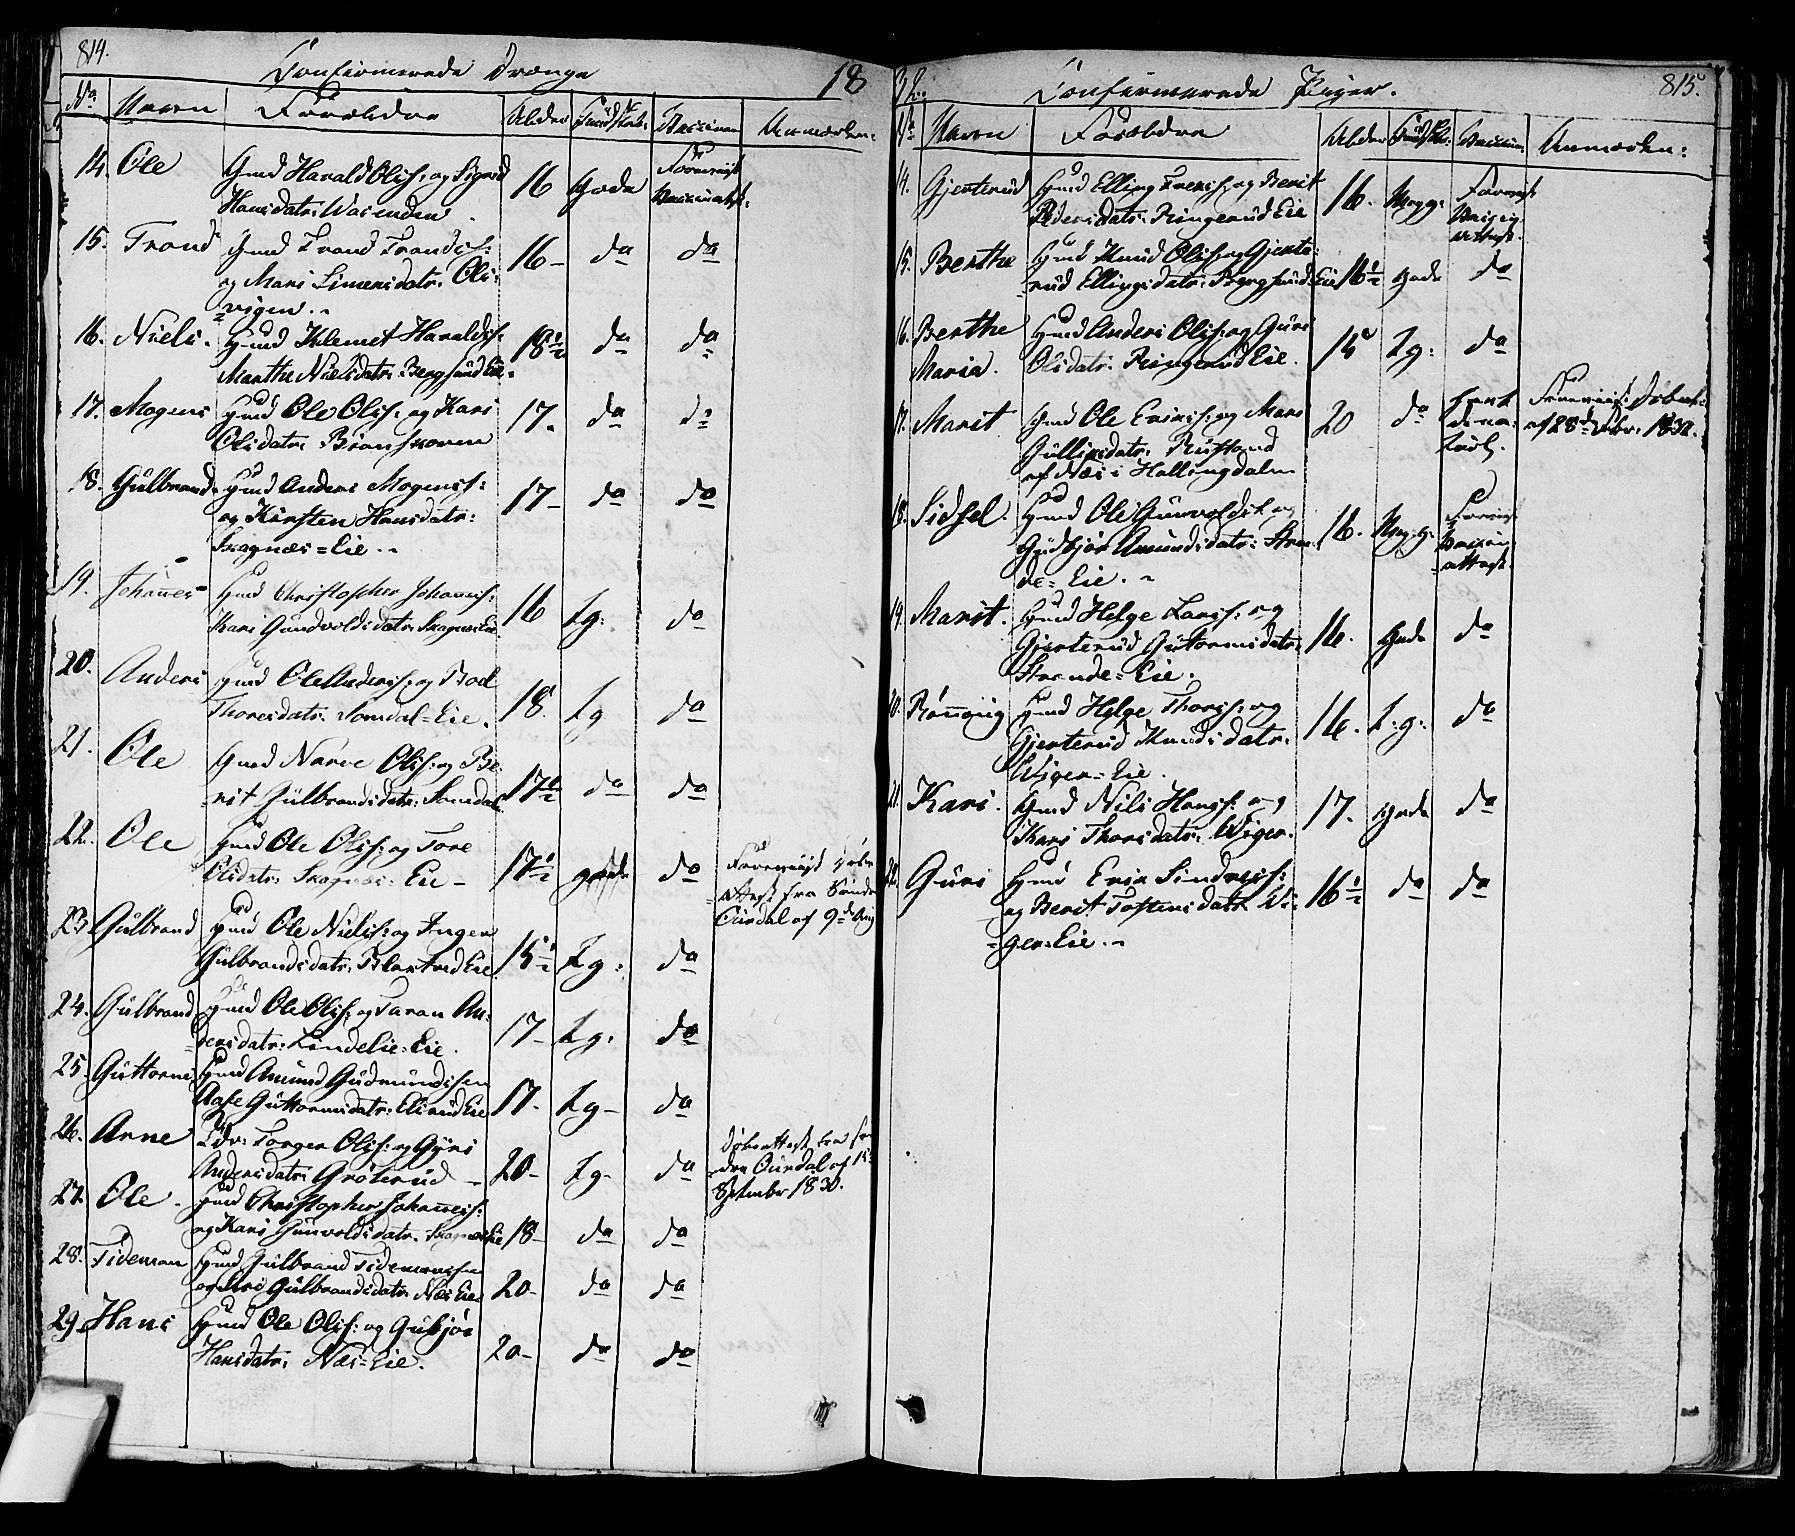 814.
Confirmerede Drenge
18
No
Navn
Forældre
Alder
Kundskab:
Vaccineret
Anmærkn:
14.
Ole
Gmd Harald Olss: og Sigrid
Hansdatr: Wasenden
16
Gode
Foreviist
Vaccinatt:
15.
Trond
Gmd Trond Trondss:
og Mari Simensdatr: Ols-
vigen.
16-
do
do
16.
Niels.
Hmd Klemet Haraldss:
Marthe Nielsdatr: Bergsund Eie.
18½
do
do
17.
Mogens
Hmd Ole Olss: og Kari
Olsdatr: Bionskoven
17.
do
do
18.
Gulbrand
Hmd Anders Mogenss:
og Kirsten Hansdatr:
Skagnæs=Eie.
17-
do
do
19.
Johannes
Hmd Christopher Johanss:
Kari Gundvoldsdatr: Skagnæs Eie
16
Tg:
do
20.
Anders
Hmd Ole Anderss: og Bod
Thoresdatr: Somdal=Eie.
18.
Tg
do
21.
Ole
Gmd Narve Olss: og Be-
rit Gulbrandsdatr: Somdal
17½
do
do
22.
Ole
Hmd Ole Olss: og Tore
Olsdatr: Skagnæs Eie-
17½
gode
do
Foreviist Døbe
attest fra Søndre
Ourdal af 9de Aug
23
Gulbrand
Hmd Ole Nielss: og Inger
Gulbrandsdatr: Eie
15½
Tg:
do
24.
Gulbrand
Hmd Ole Olss: og Taran An-
dersdatr: Lindelie=Eie.
17-
Tg:
do
25.
Guttorm
Hmd Amund Gudmundssen
Aase Guttormsdatr: Elsrud Eie
17.
Tg-
do
26.
Arne
Torger Olss: og Gyri
Andersdatr: Grøterud-
20-
Tg-
do
Døbeattest fra Søn
dre Ourdal af 15
September 1830.
27.
Ole.
Hmd Christopher Johaness:
og Kari Gunvoldsdatr: Skagnæs Eie
18-
do
do
28.
Tideman
Hmd Gulbrand Tidemanssen
og Gulbrandsdatr: Næs Eie
20-
do
do
29.
Hans
Hmd Ole Olss: og Gubjør
Hansdatr: Næs=Eie.
20-
do
do
32.
Confirmerede Piger.
815.
No
Navn
Forældre
Alder
Kundskb:
Vaccin:
Anmærkn:
14.
Gjerterud
Hmd Elling Frerss: og Berit
Pedersdatr: Ringerud Eie
16.
Meg g:
Foreviist
Vaccin
attest.
15.
Berthe
Hmd Knud Olss: og Gjerte-
rud Ellingsdatr: Bergsund Eie
16½
Gode
do
16.
Berthe
Maria.
Hmd Anders Olss: og Guri
Olsdatr: Ringerud Eie.
15
Tg:
do
17.
Marit
Gmd Ole Erikss: og Mari
Gullixdatr: Rustand
af Næs i Hallingdalen
20
do
havt
de na-
turl.
Foreviist Døbeat:
af 28de 1832.
18.
Sidsel.
Hmd Ole Gunvolds: og
Gudbjør Amundsdatr: Stran-
de=Eie.
16.
Meg g:
Foreviist
Vaccin
attest.
19.
Marit.
Hmd Helge Larss: og
Gjerterud Guttormsdatr:
Strande=Eie.
16.
Gode
do
20.
Rønnoug
Hmd Helge Thorss: og
Gjerterud Knudsdatr:
Wiger=Eie.
16.
T:g:
do
21.
Kari.
Gmd Nils Hanss: og
Kari Thorsdatr: Wiger.
17.
Gode
do
22.
Guri
Hmd Erik Sindress:
og Berit Tostensdatr: Wi-
ger=Eie.
16½
do
do